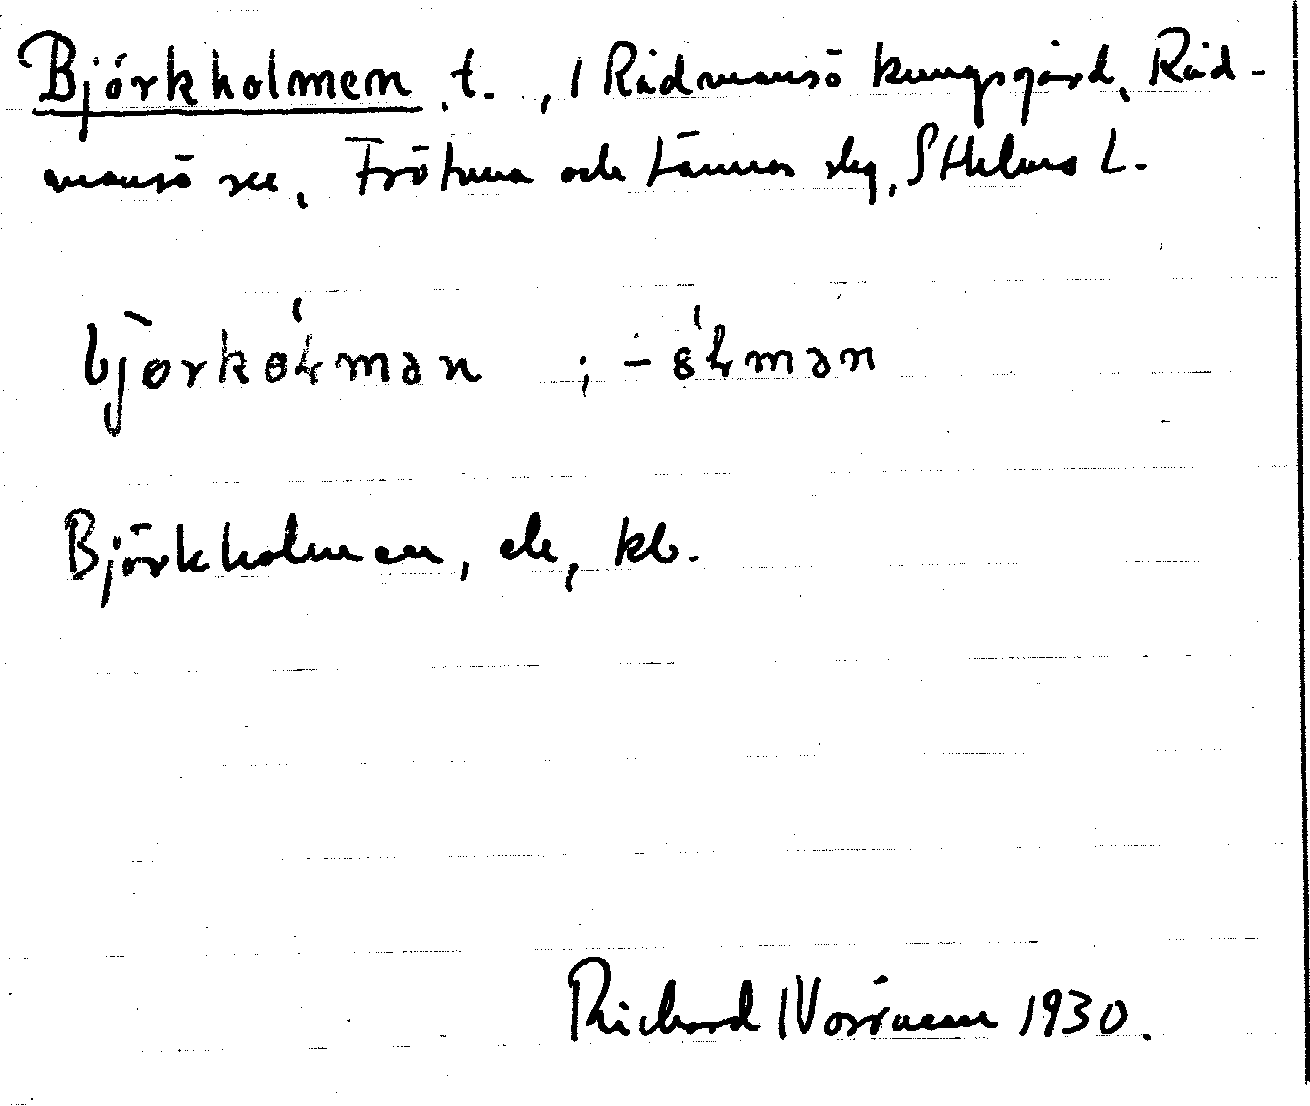 Björkholmen, t., / Rådmansö kungsgård, Råd-
mansö sn, Frötuna och Länna slg, Sthlms L.
bjørkólmən ; -ólmən
Björkholmen, de, kb.
Richard 1930.